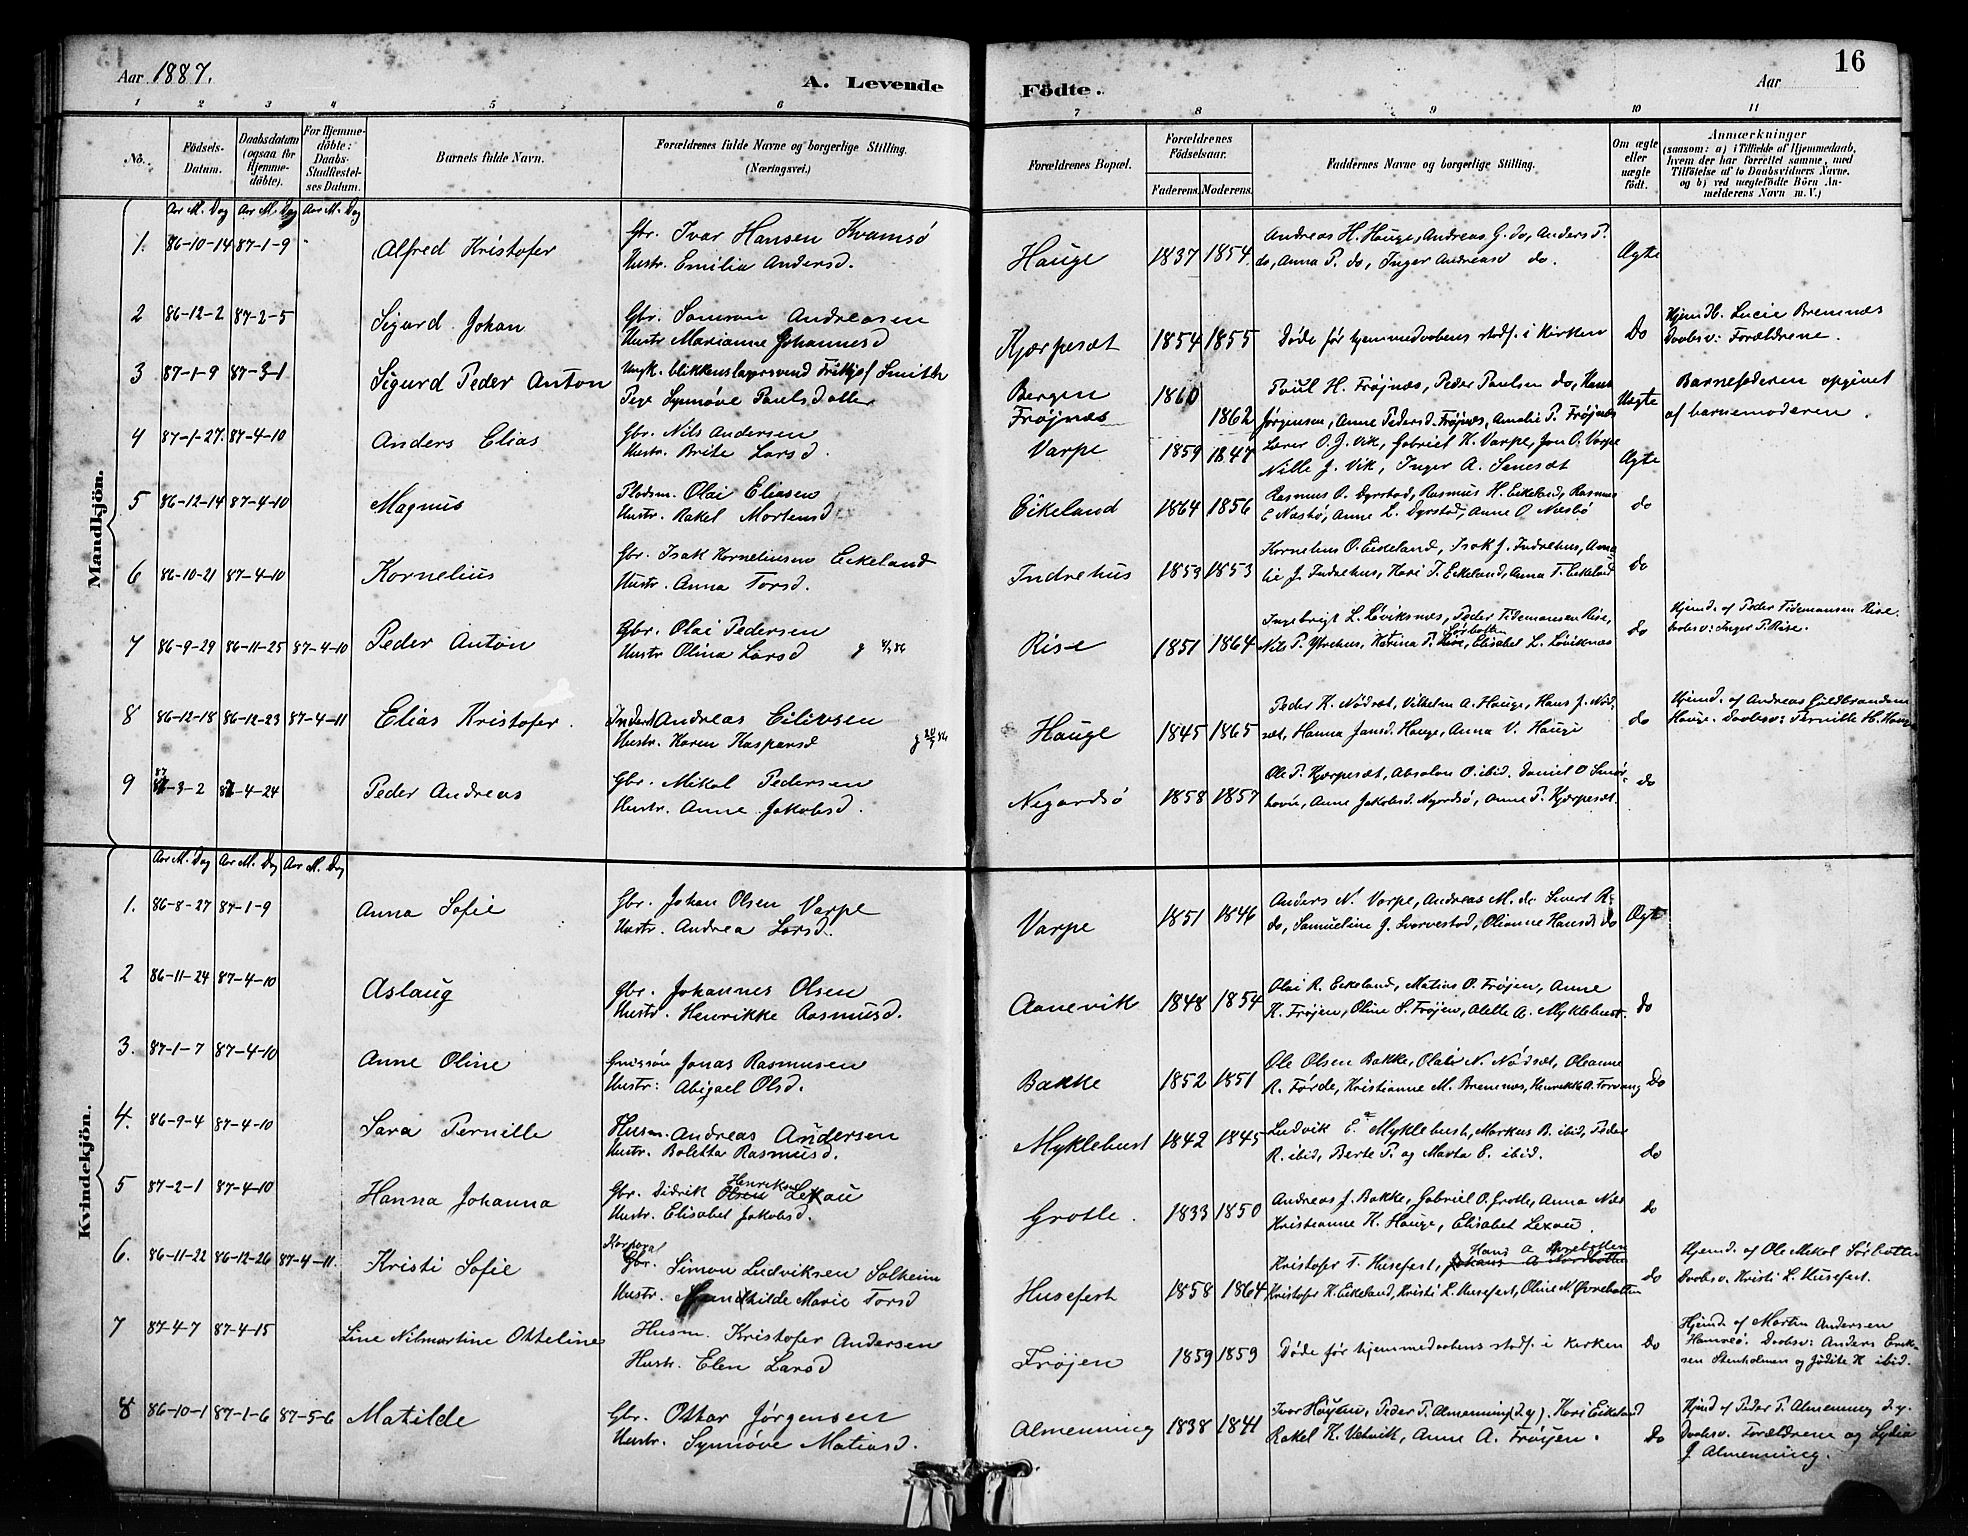 16
Aar 1887.
A. Levende Födte.
Aar
1 2 3 4 5 6 7 8 9 10 11
No.
Födsels-Datum.
Daabsdatum (ogsaa for Hjemme-döbte).
For Hjemme-döbte: Daabs-Stadfæstel-ses Datum.
Barnets fulde Navn.
Forældrenes fulde Navne og borgerlige Stilling. (Næringsvei.)
Forældrenes Bopæl.
Forældrenes Födselsaar.
Faderens. Moderens.
Faddernes Navne og borgerlige Stilling.
Om ægte eller uægte födt.
Anmærkninger (saasom: a) i Tilfælde af Hjemmedaab, hvem der har forrettet samme, med Tilföielse af to Daabsvidners Navne, og b) ved uægtefödte Börn An-melderens Navn m. V.)
Mandkjön.
Aar M. Dag Aar M. Dag Aar M. Dag
1. 86-10-14 87-1-9 Alfred Kristofer
Gbr. Ivar Hansen Kvamsø
Hustr. Emilia Andersd.
Hauge 1837 1854
Andreas H. Hauge, Andreas G. do, Anders P.
do, Anna P. do, Inger Andreasd do.
Ægte
2 86-12-2 87-2-5 Sigurd Johan
Gbr. Samson Andreasen
Hustr Marianne Johannesd
Kjærpesæt 1854 1855
Døde før hjemmedaabens stadf. i Kirken
Do
Hjemdb. Lucie Bremnæs
Daabsv: Forældrene.
3 87-1-9 87-3-1 Sigurd Peder Anton
Ungk. blikkenslagersvend Fritjof Smith
Pige Synnøve Paulsdatter
Bergen 1860
Frøjnæs 1862
Poul H. Frøjnæs, Peder Paulsen do, Hans
Jørgensen, Anne Pedersd. Frøjnæs, Amalie P. Frøjnæs
Uægte
Barnefaderen opgivet
af barnemoderen.
4 87-1-27. 87-4-10 Anders Elias
Gbr. Nils Andersen
Hustr. Brite Larsd.
Varpe 1859 1847
Lærer O. J. Vik, Gabriel H. Varpe, Jon O. Varpe
Nille J. Vik, Inger A.
Ægte
5 86-12-14 87-4-10 Magnus
Pladsm. Olai Eliasen
Hustr. Rakel Mortensd
Eikeland 1864 1856
Rasmus O. Dyrstad, Rasmus H. Eikeland, Rasmus
E Næsbø, Anne L. Dyrstad, Anne O Næsbø
do
6 86-10-21 87-4-10 Kornelius
Gbr. Isak Korneliusen Eikeland
Hustr. Anna Torsd.
Indrehus 1853 1853
Kornelius O. Eikeland, Isak J. Indrehus, Ama-
lie J. Indrehus, Kari T. Eikeland, Anna T. Eikeland
do
7 86-9-29 86-11-25 87-4-10 Peder Anton
Gbr. Olai Pedersen
Hustr Olina Larsd
Rise 1851 1864
Ingebrigt L. Løviknæs, Peder Tidemansen Rise,
Nils P. Ytrehus, Katrina P. Rise, Elisabet L. Løviknæs
Sørbotten
do
Hjemd. af Peder Tidemansen Rise.
Daabsv: Inger P. Rise.
8 86-12-18 86-12-23 87-4-11 Elias Kristofer.
Inderst Andreas Eilivsen
Hustr. Karen Kaspersd
Hauge 1845 1865
Peder K. Nødset, Vilhelm A. Hauge, Hans J. Nød-
set, Hanna Jansd. Hauge, Anna V. Hauge
do
Hjemd. af Andreas Guldbrandsen
Hauge. Daabsv: Pernille H. Hauge
9 87-3-2 87-4-24 Peder Andreas
Gbr. Mikal Pedersen
Hustr. Anne Jakobsd.
Nigardsø 1858 1857
Ole P. Kjærpesæt, Absalon O. ibid. Daniel O Smør-
havn, Anne Jakobsd. Nygardsø, Anne P. Kjærpesæt.
do
Kvindekjön.
Aar M. Dag Aar M. Dag Aar M. Dag
1. 86-8-27 87-1-9 Anna Sofie
Gbr. Johan Olsen Varpe
Hustr. Andrea Larsd.
Varpe 1851 1846
Anders N. Varpe, Andreas M. do Sivert R.
do, Samueline J. Svarvestad, Olianne Hansd. do
Ægte
2 86-11-24 87-4-10 Aslaug
Gbr. Johannes Olsen
Hustr. Henrikke Rasmusd.
Aanevik 1848 1854
Olai R. Eikeland, Matias O. Frøjen, Anne
K. Frøjen, Oline S. Frøjen, Alette A. Myklebust.
do
3. 87-1-7 87-4-10 Anne Oline
Jonas Rasmusen
Hustr: Abigael Olsd.
Bakke 1852 1851
Ole Olsen Bakke, Olai N. Nødset, Oleanne
R. Førde, Kristianne M. Bremnes, Henrikke A. Torvang
Do
4. 86-9-4 87-4-10 Sara Pernille
Husm. Andreas Andersen
Hustr. Boletta Rasmusd.
Myklebust 1842 1845
Ludvik E. Myklebust, Markus B. ibid, Peder
R. ibid, Berte P. og Marta E. ibid.
do
5 87-2-1 87-4-10 Hanna Johanna
Gbr. Didrik Olsen Henriksen Lexau
Hustr. Elisabet Jakobsd.
Grotle. 1833 1850
Andreas J. Bakke, Gabriel O. Grotle, Anna Næs
Kristianne K. Hauge, Elisabet Lexau.
do
6. 86-11-22 86-12-26 87-4-11. Kristi Sofie
Korporal
Gbr. Simon Ludviksen Solheim
Hustr. Marie Torsd
Husefest 1858 1864
Kristofer T. Husefest, Hans A Øvrebotten
Kristofer K. Eikeland, Kristi L. Husefest, Oline N. Øvrebotten
do
Hjemd. af Ole Mikal Sørbotten
Daabsv. Kristi L. Husefest.
7 87-4-7 87-4-15 Line Nilsmartine Otteline
Husm. Kristofer Andersen
Hustr. Elen Larsd
Frøjen 1859 1859
Døde før hjemmedaabens stadf. i kirken
Do
Hjemd. af Martin Andersen
Hamrø. Daabsv: Anders Erik-
sen Stenholmen og Jødite K ibid.
8 86-10-1 87-1-6 87-5-6 Matilde
Gbr. Ottar Jørgensen
Hustr. Synnøve Matiasd.
Almenning 1838 1841
Ivar Høyen, Peder P. Almenning (d.y). Kari Eikeland
Rakel K. Vetvik, Anne A. Frøyen.
Do
Hjemd af Peder P. Almenning d.y.
Daabsv. Forældrene og Lydia
J. Almenning.